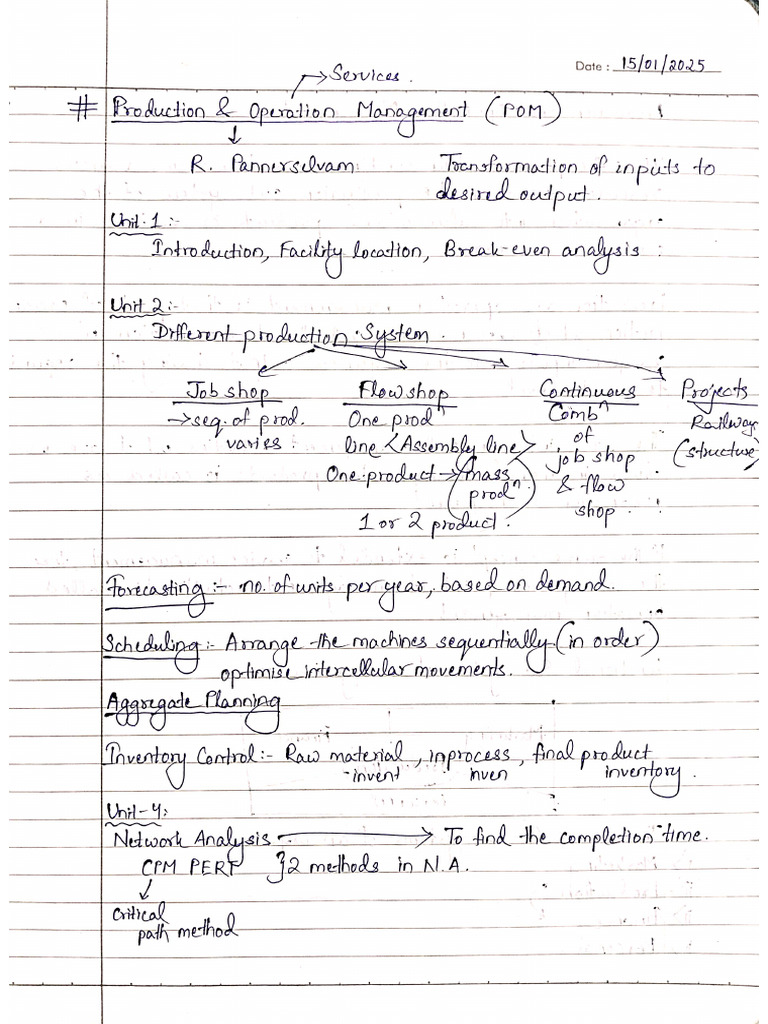 Services.
Date : 15/01/2025
# Production & Operation Management (POM)
R. Pannerselvam
Transformation of inputs to
desired output.
Unit-1:-
Introduction, Facility location, Break-even analysis
Unit 2:-
Different production System.
Job shop
→ seq. of prod.
varies.
Flow shop
One prodⁿ
line <Assembly line>
One product → (mass
prodⁿ.)
1 or 2 product.
Continuous
Combⁿ
of
job shop
& flow
shop.
Projects
Railway
(structure)
Forecasting:- no. of units per year, based on demand.
Scheduling:- Arrange the machines sequentially (in order)
optimise intercellular movements.
Aggregate Planning
Inventory Control:- Raw material, inprocess, final product
-invent inven inventory.
Unit-4:
Network Analysis → To find the completion time.
CPM PERT }2 methods in N.A.
critical
path method